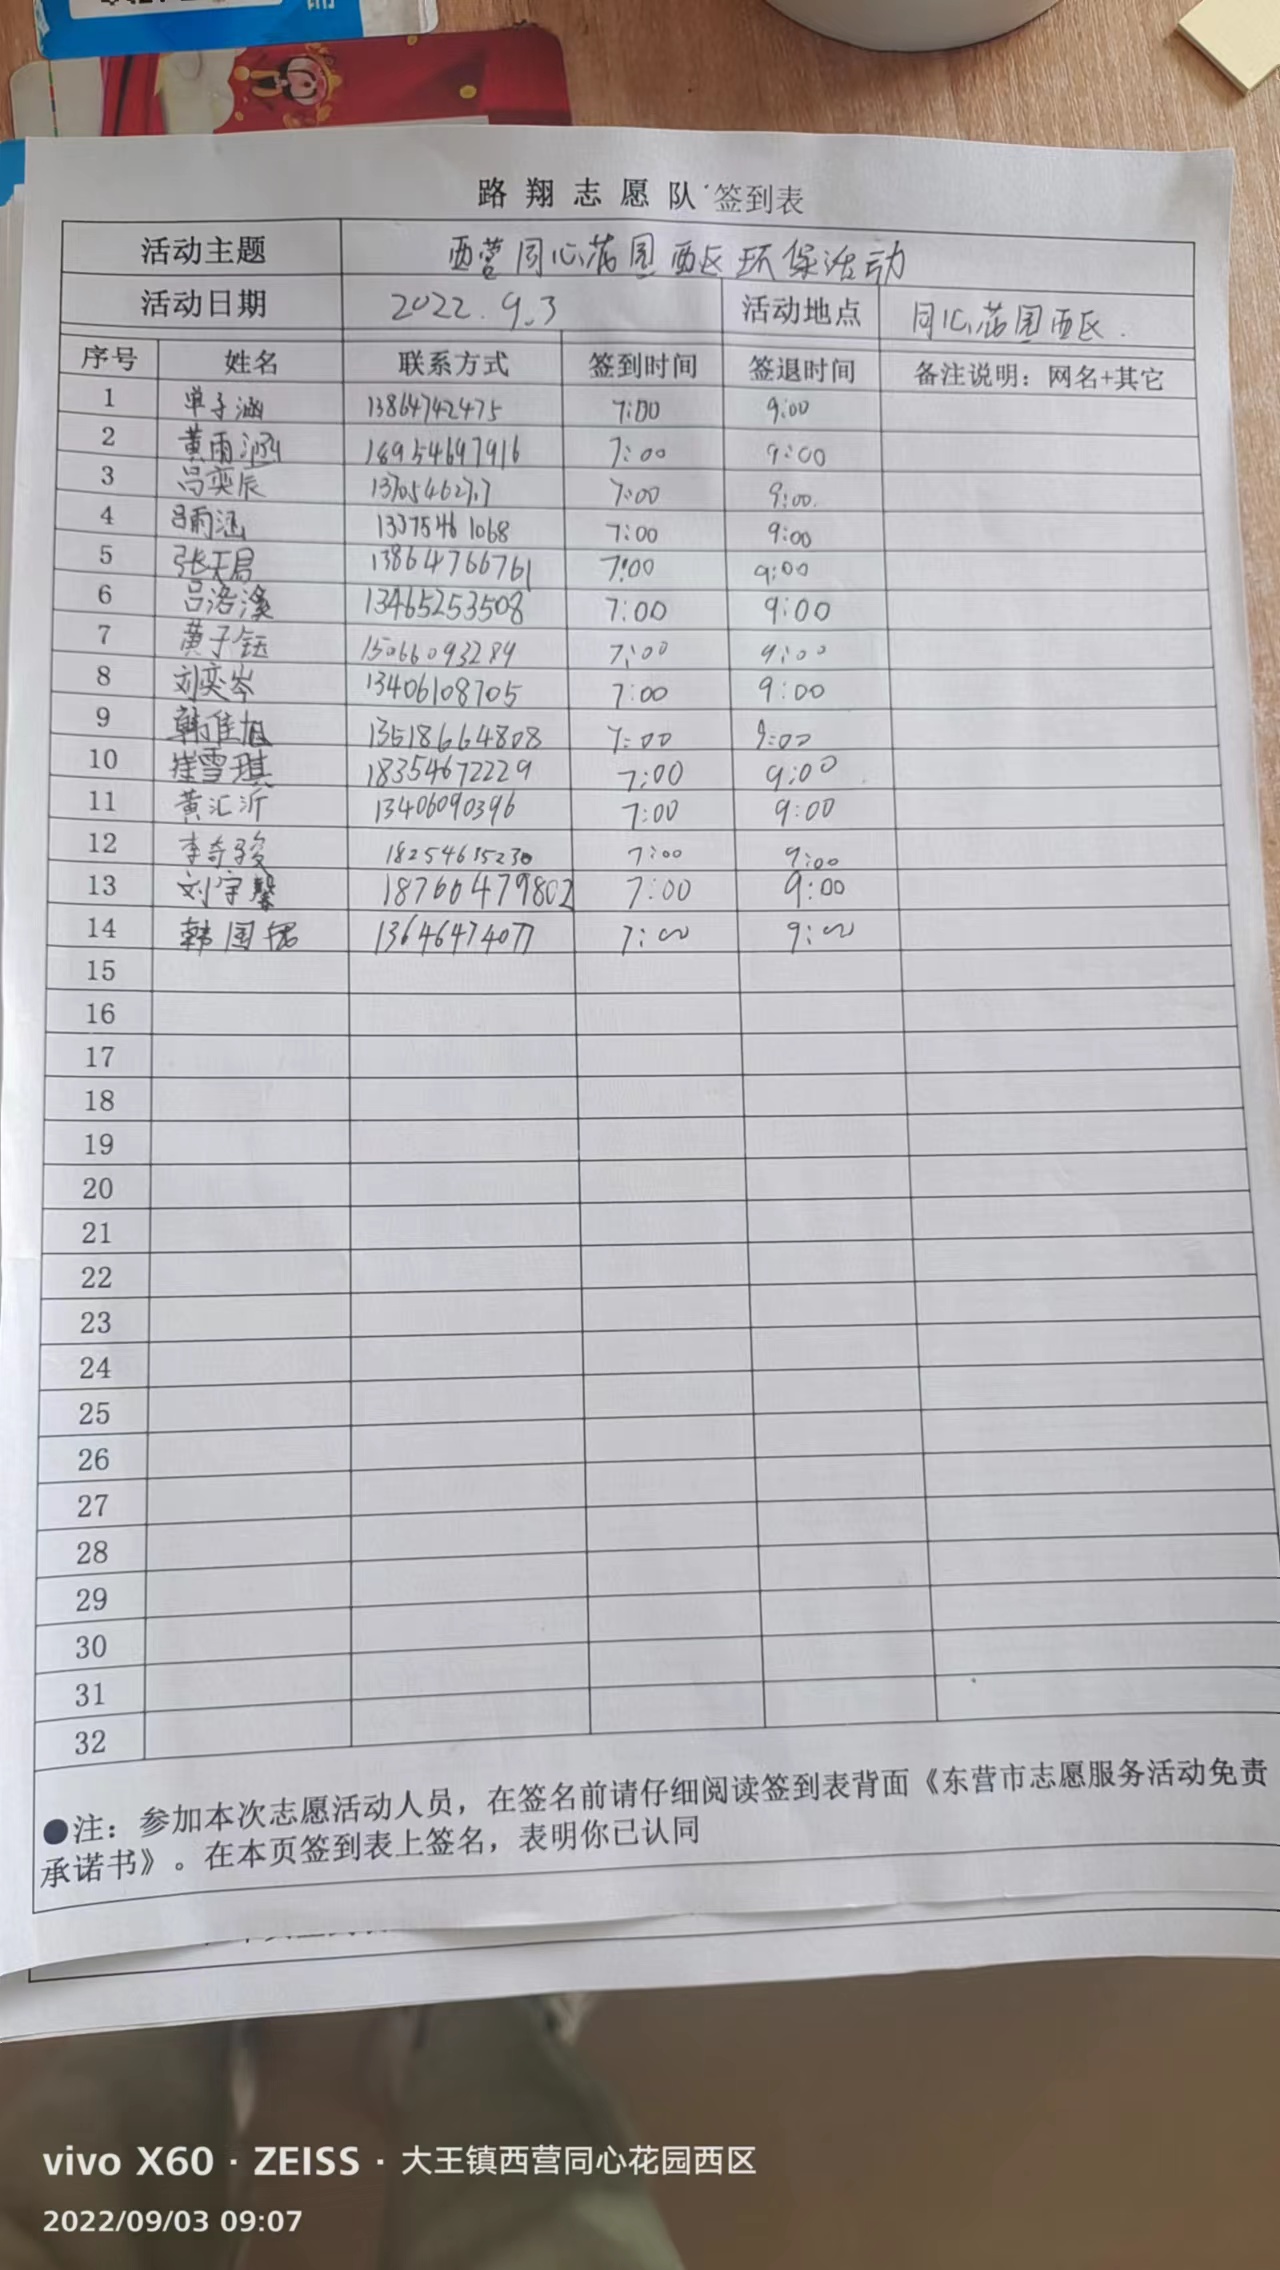 路翔志愿队 签到表
活动主题 西营同心花园西区环保活动
活动日期 2022.9.3 活动地点 同心花园西区.
序号 姓名 联系方式 签到时间 签退时间 备注说明：网名+其它
1 单子涵 13864742475 7:00 9:00
2 黄雨涵 18954697916 7:00 9:00
3 吕奕辰 7:00 9:00
4 吕雨涵 13375461068 7:00 9:00
5 张天君 13864766761 7:00 9:00
6 吕洛溪 13465253508 7:00 9:00
7 黄子钰 15066093289 7:00 9:00
8 刘奕岑 13406108705 7:00 9:00
9 韩佳旭 13518664808 7:00 9:00
10 崔雪琪 18354672229 7:00 9:00
11 黄汇沂 13406090396 7:00 9:00
12 李奇骏 18254635230 7:00 9:00
13 刘宇馨 18766479802 7:00 9:00
14 韩国 13646474077 7:00 9:00
15
16
17
18
19
20
21
22
23
24
25
26
27
28
29
30
31
32
●注：参加本次志愿活动人员，在签名前请仔细阅读签到表背面《东营市志愿服务活动免责
承诺书》。在本页签到表上签名，表明你已认同
vivo X60 · ZEISS · 大王镇西营同心花园西区
2022/09/03 09:07